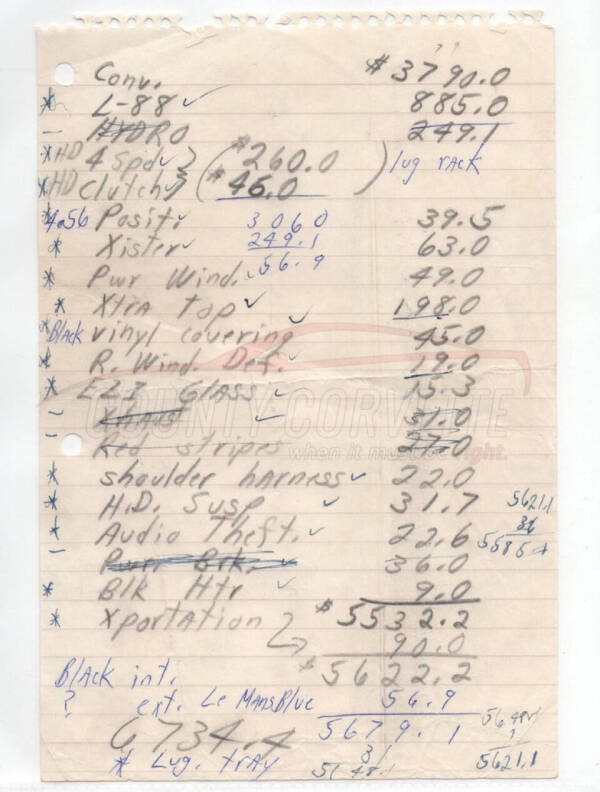 Conv. $3790.0
* L-88 ✓ 885.0
- HYDRO 249.1
*HD 4 Spd ✓ } ( $260.0 ) lug rAck
*HD Clutch ✓ } ( $46.0
4.56 Posit. ✓ 3060 39.5
* Xister ✓ 249.1 63.0
* Pwr Wind. ✓ 56.9 49.0
* XtrA top ✓ 198.0
*BlAck vinyl covering ✓ 45.0
* R. Wind. Def. ✓ 19.0
* EZI GlASS ✓ 15.3
COUNTY CORVETTE
- XhAust ✓ 31.0
when it must be right.
- Red stripes 27.0
* shoulder hArness ✓ 22.0
* H.D. Susp ✓ 31.7 5621.1
* Audio Theft. ✓ 22.6 36
5585.1
- Pwr Brk. ✓ 36.0
* Blk Htr ✓ 9.0
* XportAtion $5532.2
90.0
$5622.2
BlAck int. 56.9
? ext. Le MAnsBlue
5679.1
6734.4 31
* Lug. trAy 5648.1 5621.1